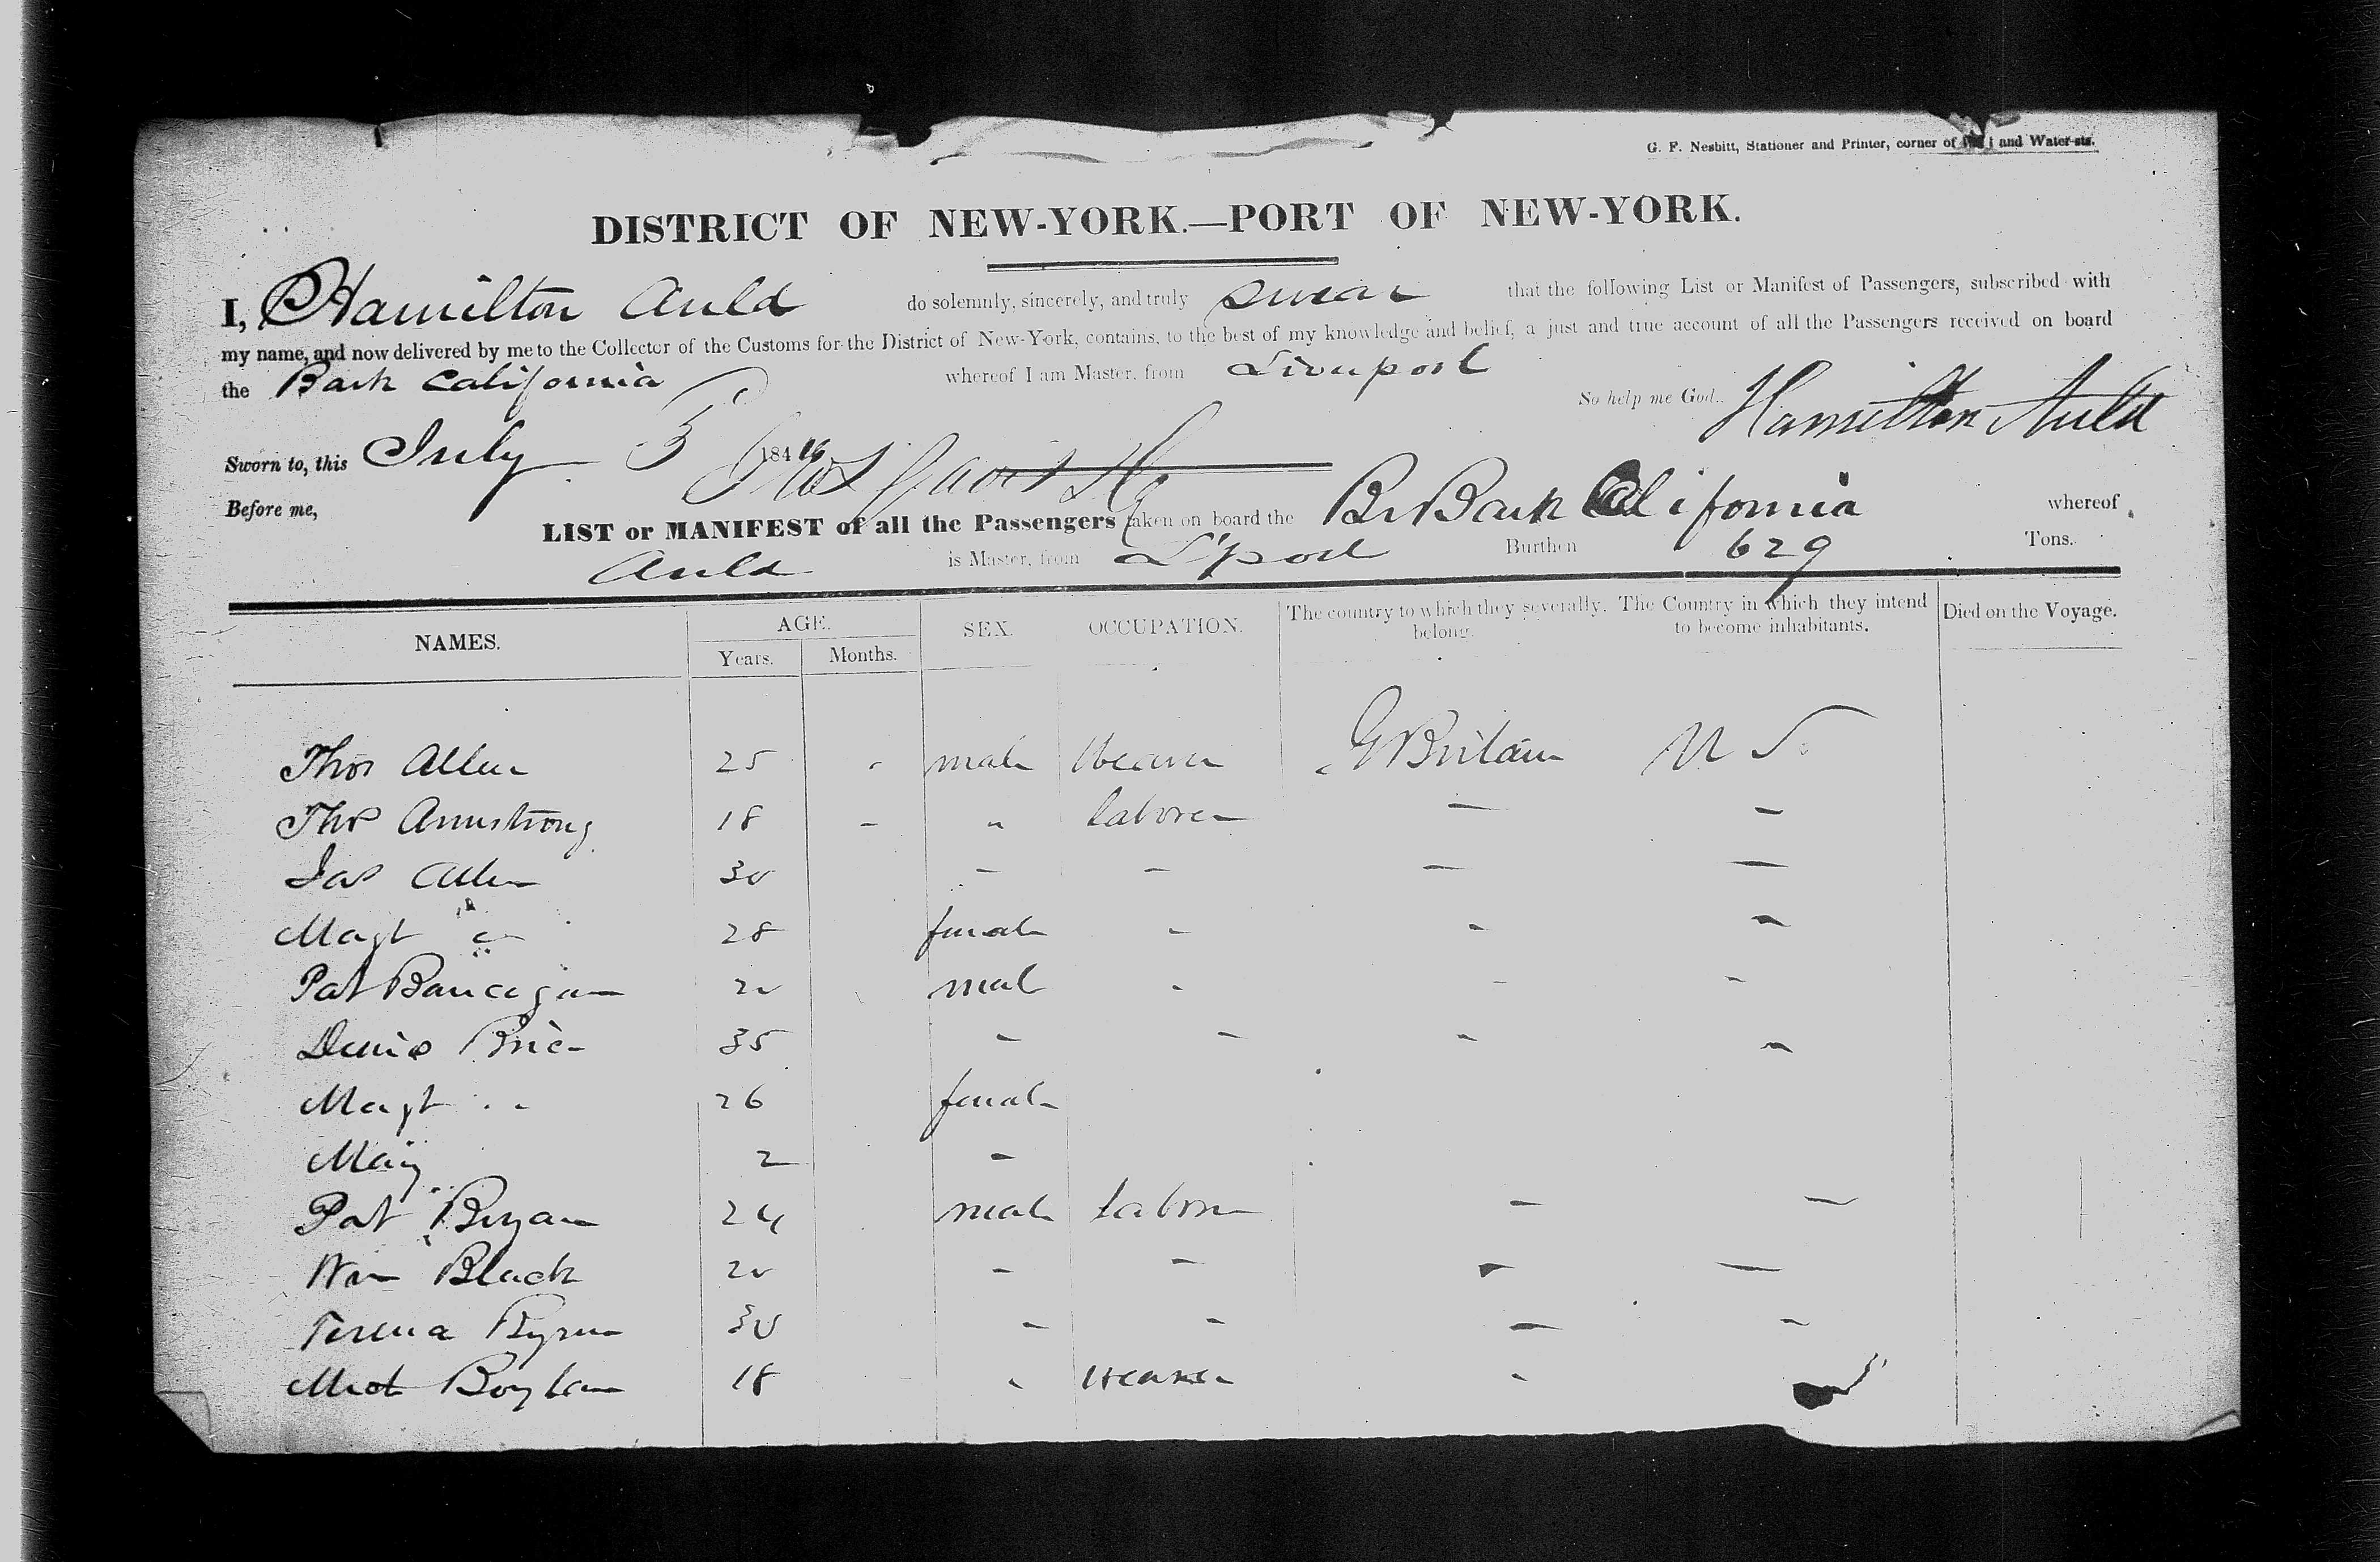 G. F. Nesbitt, Stationer and Printer, corner of and Water-sts.
DISTRICT OF NEW-YORK.—PORT OF NEW-YORK.
I, Hamilton Auld do solemnly, sincerely, and truly swear that the following List or Manifest of Passengers, subscribed with
my name, and now delivered by me to the Collector of the Customs for the District of New-York, contains, to the best of my knowledge and belief, a just and true account of all the Passengers received on board
the Bark California whereof I am Master, from Liverpool
So help me God. Hamilton Auld
Sworn to, this July 3 184
Before me,
LIST or MANIFEST of all the Passengers taken on board the Br Bark California whereof
Auld is Master, from L'pool Burthen 629 Tons.
NAMES. AGE. SEX. OCCUPATION. The country to which they severally belong. The Country in which they intend to become inhabitants. Died on the Voyage.
Years. Months.
Thos Allen 25 " male Weaver G Britain U S.
Thos Armstrong 18 - " laborer — —
Jas Allen 30 - - — —
Magt " 28 female - - -
Pat 20 male - - -
Denis Brien 35 - - - -
Magt " 26 female
Mary 2 -
Pat Bryan 24 male labore - —
Wm Black 20 - - - —
Byrne 30 - - - -
Mich Boylan 18 " weaver -